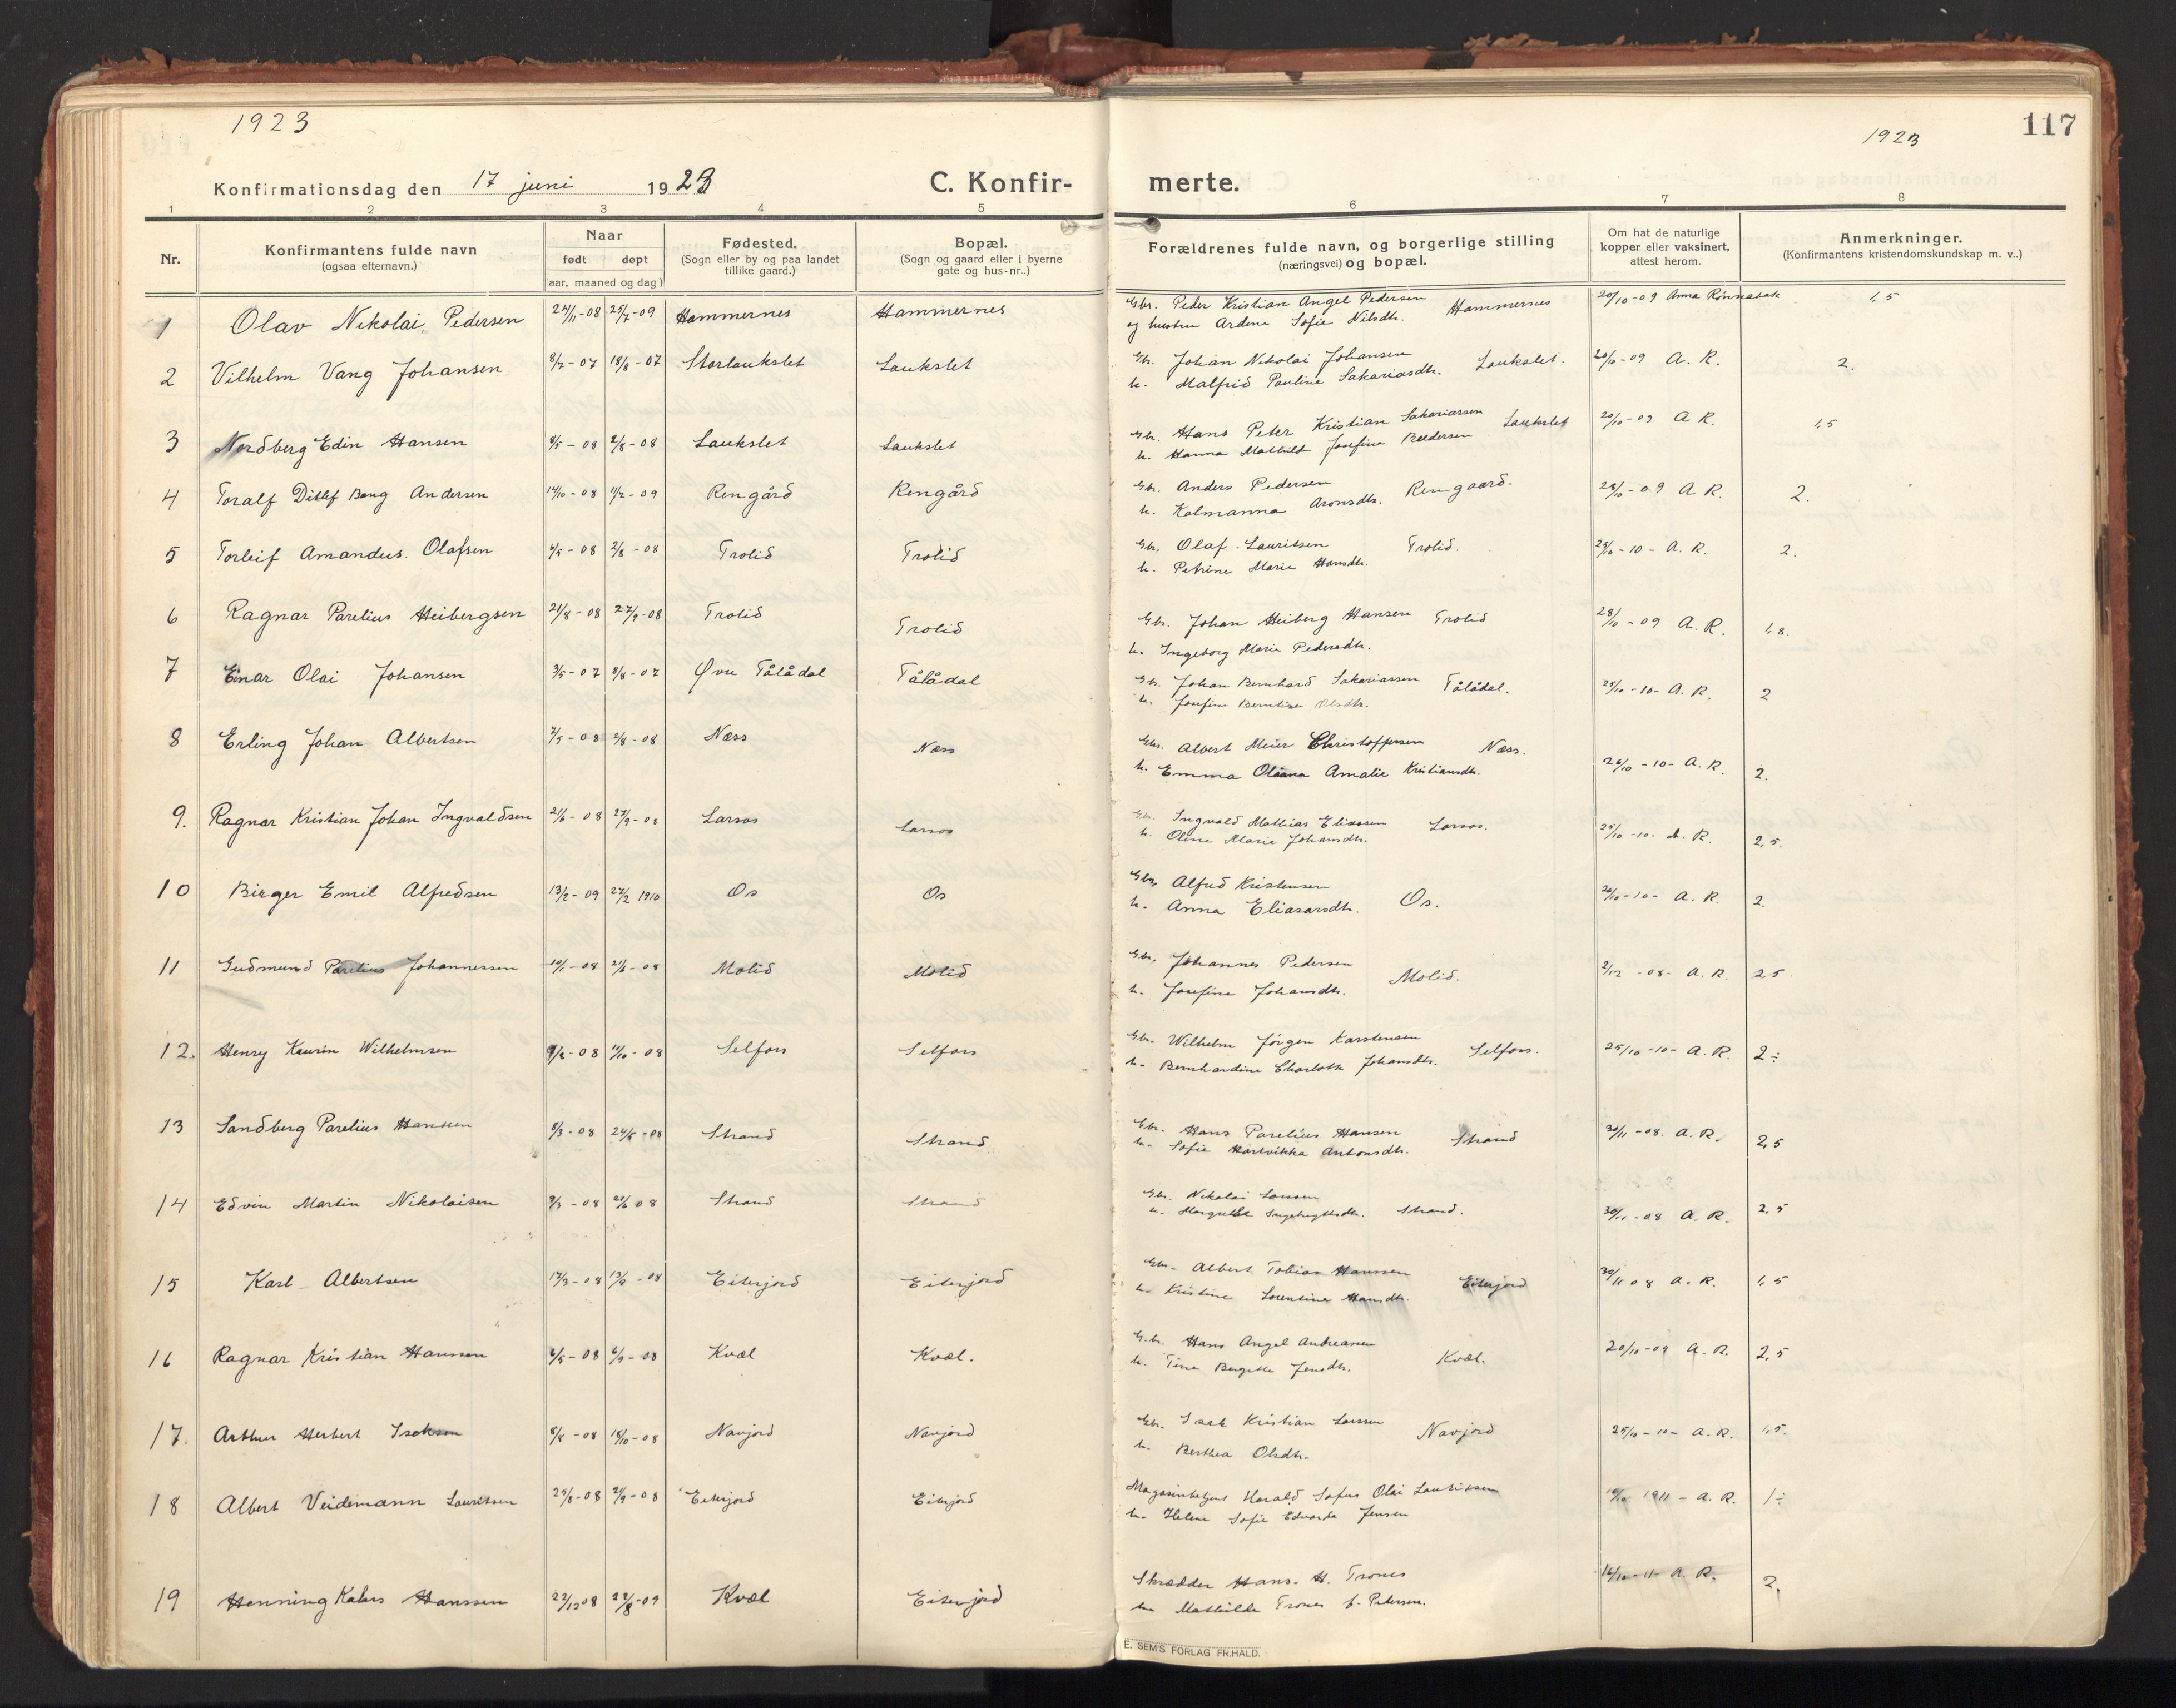 1923
1923
117
Konfirmationsdag den 17 juni 1923
C. Konfir-
merte.
1 2 3 4 5 6 7 8
Nr.
Konfirmantens fulde navn
(ogsaa efternavn.)
Naar
født
døpt
(aar, maaned og dag)
Fødested.
(Sogn eller by og paa landet
tillike gaard.)
Bopæl.
(Sogn og gaard eller i byerne
gate og hus-nr..)
Forældrenes fulde navn, og borgerlige stilling
(næringsvei) og bopæl.
Om hat de naturlige
kopper eller vaksinert,
attest herom.
Anmerkninger.
(Konfirmantens kristendomskundskap m. v..)
1 Olav Nikolai Pedersen 24/11-08 25/7-09 Hammernes Hammernes Gbr. Peder Kristian Angel Pedersen Hammernes 20/10-09 Anna Rønnabak 1,5
og hustru Ardine Sofie Nilsdtr.
2 Vilhelm Vang Johansen 8/7-07 18/8-07 Storlaukslet Laukslet Gbr. Johan Nikolai Johansen Laukslet. 20/10-09 A. R. 2.
h. Malfrid Pauline Sakariasdtr.
3 Nordberg Edin Hansen 8/5-08 2/8-08 Laukslet Laukslet Gbr. Hans Peter Kristian Sakariassen Laukslet 20/10-09 A R. 1,5
h. Hanna Mathild Josefine
4 Toralf Ditlef Bang Andersen 14/10-08 11/2-09 Rengård Rengård Gbr. Anders Pedersen Rengaard. 28/10-09 A R. 2.
h. Kolmanna Aronsdtr.
5 Torleif Amandus Olafsen 4/5-08 2/8-08 Trolid Trolid Gbr. Olaf Lauritsen Trolid. 25/10-10- A. R. 2.
h. Petrine Marie Hansdtr.
6 Ragnar Parelius Heibergsen 21/8-08 27/9-08 Trolid Trolid Gbr. Johan Heiberg Hansen Trolid 28/10-09 A. R. 1,8.
h. Ingeborg Marie Pedersdtr.
7 Einar Olai Johansen 3/5-07 8/8-07 Øvre Tålådal Tålådal Gbr. Johan Bernhard Sakariassen Tålådal. 25/10-10- A. R. 2
h. Josefine Berntine Olsdtr.
8 Erling Johan Albertsen 7/5-08 2/8-08 Næss Næss Gbr. Albert Meier Christoffersen Næss. 26/10-10- A. R. 2.
h. Emma Oliana Amalie Kristiansdtr.
9. Ragnar Kristian Johan Ingvaldsen 21/6-08 27/9-08 Larsos Larsos Gbr. Ingvald Mathias Eliassen Larsos. 25/10-10- A. R. 2,5.
h. Oline Marie Johansdtr.
10 Birger Emil Alfredsen 13/2-09 27/2 1910 Os Os Gbr. Alfred Kristensen Os. 26/10-10- A. R. 2.
h. Anna Eliasarsdtr.
11 Gudmund Parelius Johannessen 10/1-08 21/6-08 Molid Molid Gbr. Johannes Pedersen Molid. 2/12-08- A. R. 2 5
h. Josefine Johansdtr.
12. Henry Kaurin Wilhelmsen 9/2-08 11/10-08 Selfors Selfors Gbr. Wilhelm Jørgen Karstensen Selfors. 25/10-10- A. R. 2÷
h. Bernhardine Charlotte Johansdtr.
13 Sandberg Parelius Hansen 8/3-08 24/5-08 Strand Strand Gbr. Hans Parelius Hansen Strand 30/11-08. A. R. 2,5
h. Sofie Hartvikka Antonsdtr.
14 Edvin Martin Nikolaisen 9/3-08 21/6 08 Strand Strand Gbr. Nikolai Larssen Strand. 30/11-08 A. R. 2,5
h. Margrethe Ingebrigtsdtr.
15 Karl Albertsen 17/3-08 13/9-08 Eiterjord Eiterjord Gbr. Albert Tobias Hanssen Eiterjord 30/11 08 A. R. 1,5
h. Kristine Lorentine Hansdtr.
16 Ragnar Kristian Hanssen 6/5-08 6/9-08 Kvæl Kvæl. Gbr. Hans Angel Andreassen Kvæl. 20/10-09 A. R. 2,5
h. Tina Bergitte Jensdtr.
17. Arthur Herbert Isaksen 8/8-08 18/10-08 Navjord Navjord Gbr. Isak Kristian Larssen Navjord 25/10-10- A. R. 1,5.
h. Berthea Olsdtr.
18 Albert Veidemann Lauritsen 25/8-08 21/9-08 Eiterjord Eiterjord Magasinbetjent Harald Sofus Olai Lauritssen 10/10 1911- A. R. 1÷
h. Helene Sofie Edvarda Jensen
19 Henning Kabers Hanssen 22/12 08 22/8-09 Kvæl Eiterjord Skrædder Hans. H. Trones 16/10-11 A. R. 2.
h. Mathilde Trones f. Petersen.
E. SEM'S FORLAG FR.HALD.